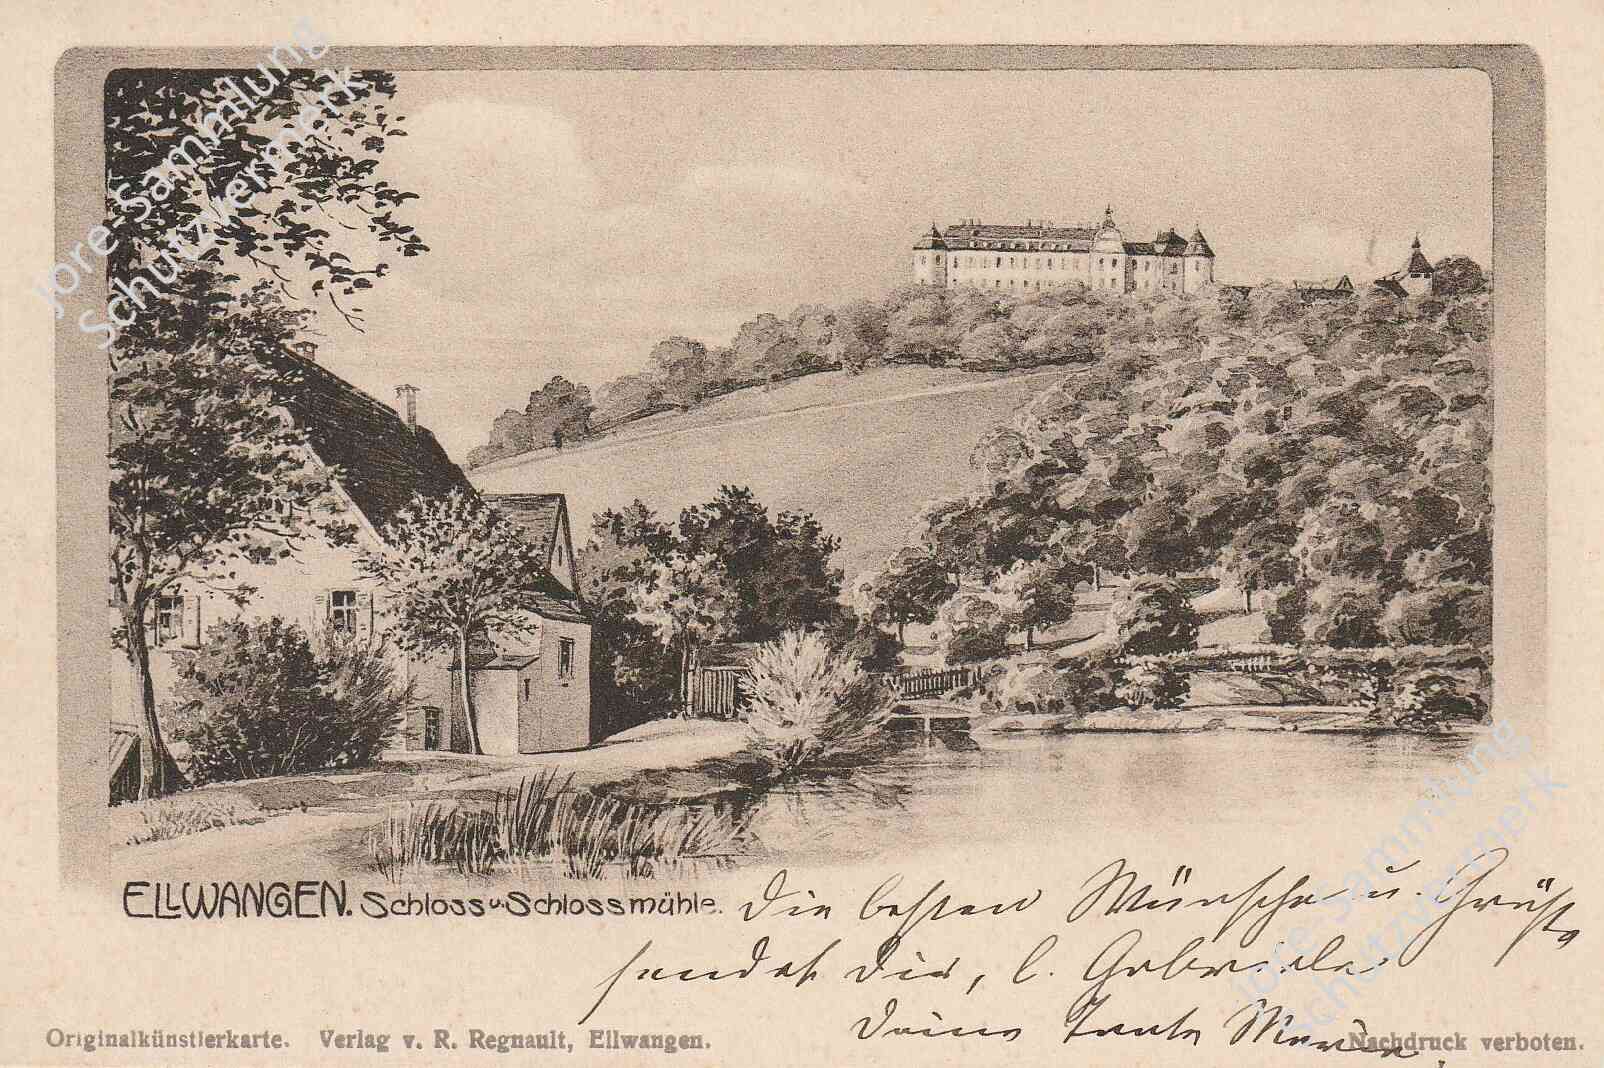 jore-Sammlung
Schutzvermerk
ELLWANGEN. Schloss u. Schlossmühle.
Die besten Wünsche u. Grüße
sendet Dir, l. Gabriele
Deine Tante Marie.
jore-Sammlung
Schutzvermerk
Originalkünstlerkarte. Verlag v. R. Regnault, Ellwangen.
Nachdruck verboten.